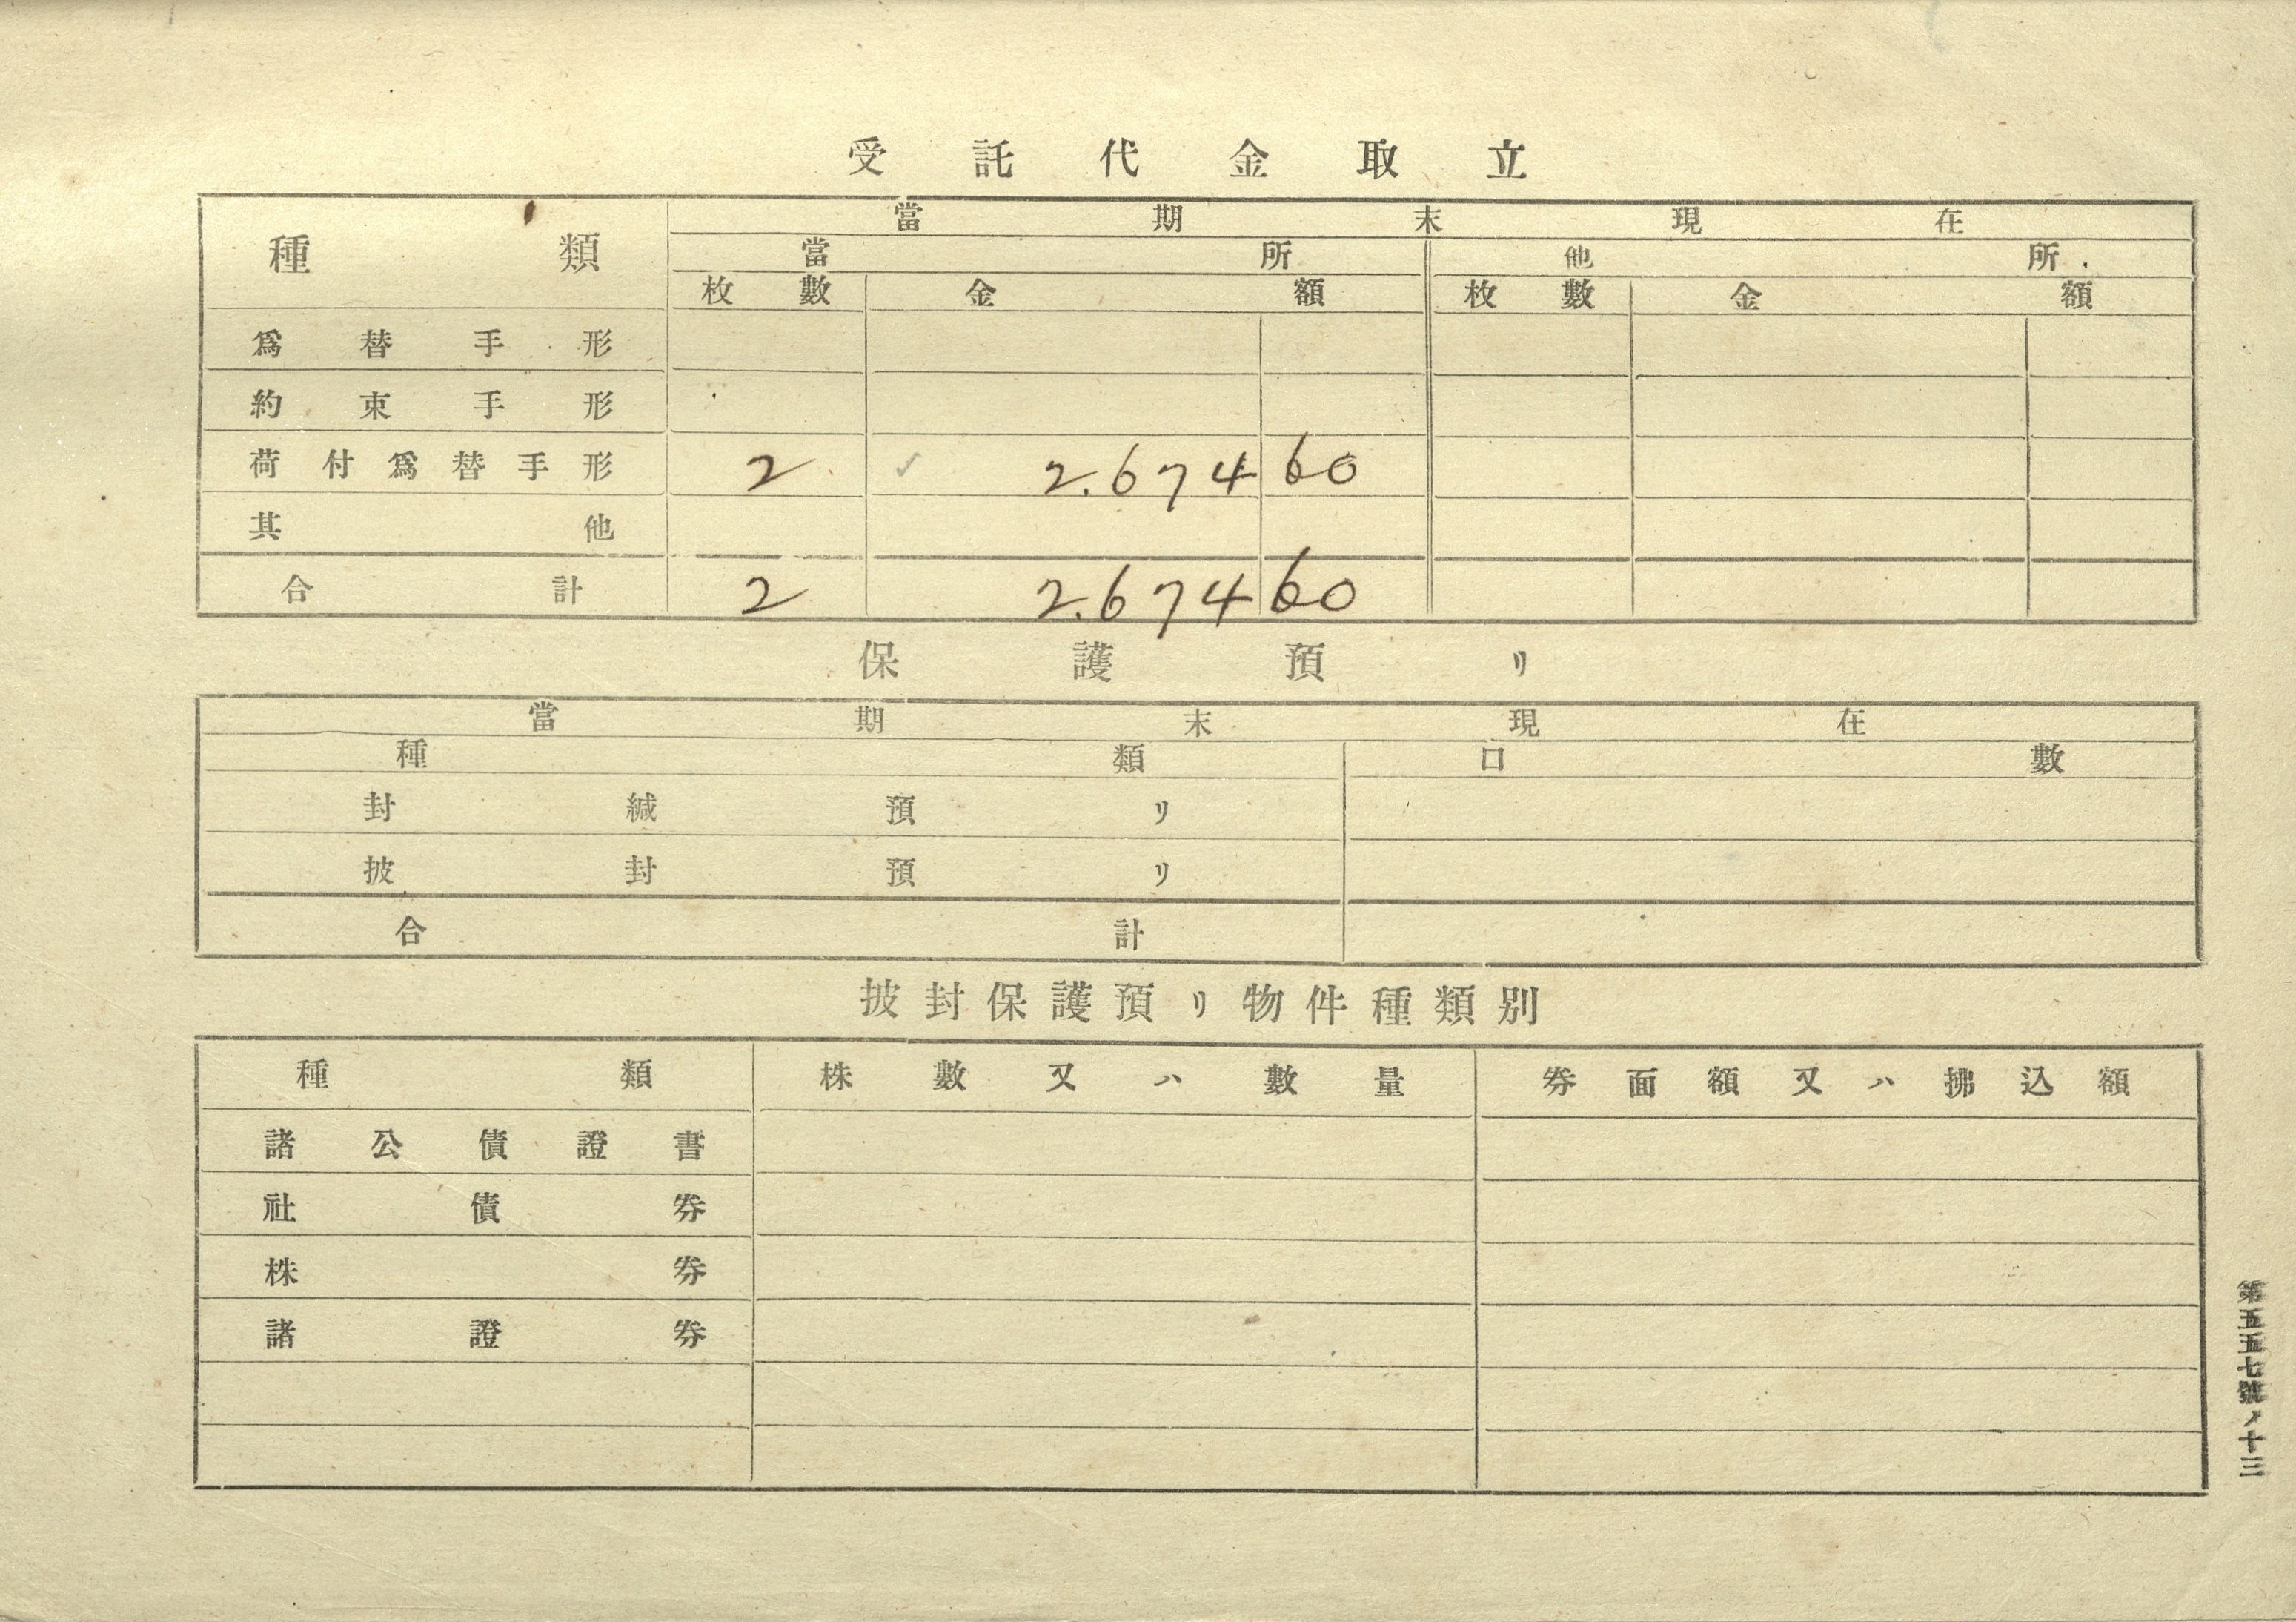 受託代金取立
種類 當期末現在
當所 他所
枚數 金額 枚數 金額
爲替手形
約束手形
荷付爲替手形 2 2.674 60
其他
合計 2 2.674 60
保護預リ
當期末現在
種類 口數
封緘預リ
披封預リ
合計
披封保護預リ物件種類別
種類 株數又ハ數量 券面額又ハ拂込額
諸公債證書
社債券
株券
諸證券
第五五七號ノ十三